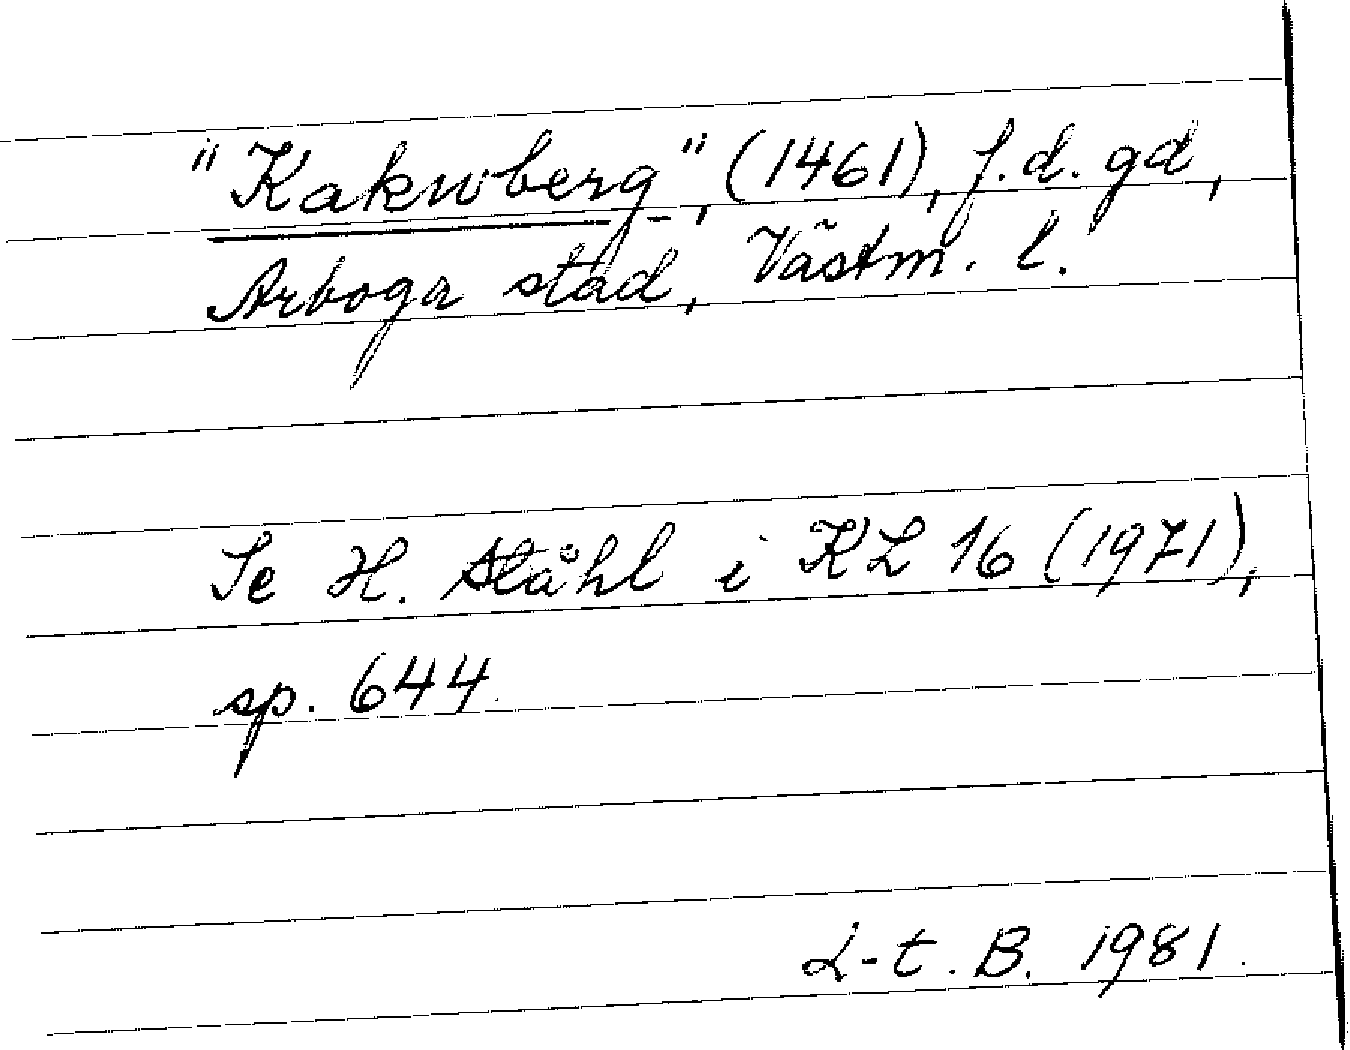 "Kakwberg", (1461), f.d. gd,
Arboga stad, Västm. l.
Se H. Ståhl i KL 16 (1971),
sp. 644.
L-t. B. 1981.